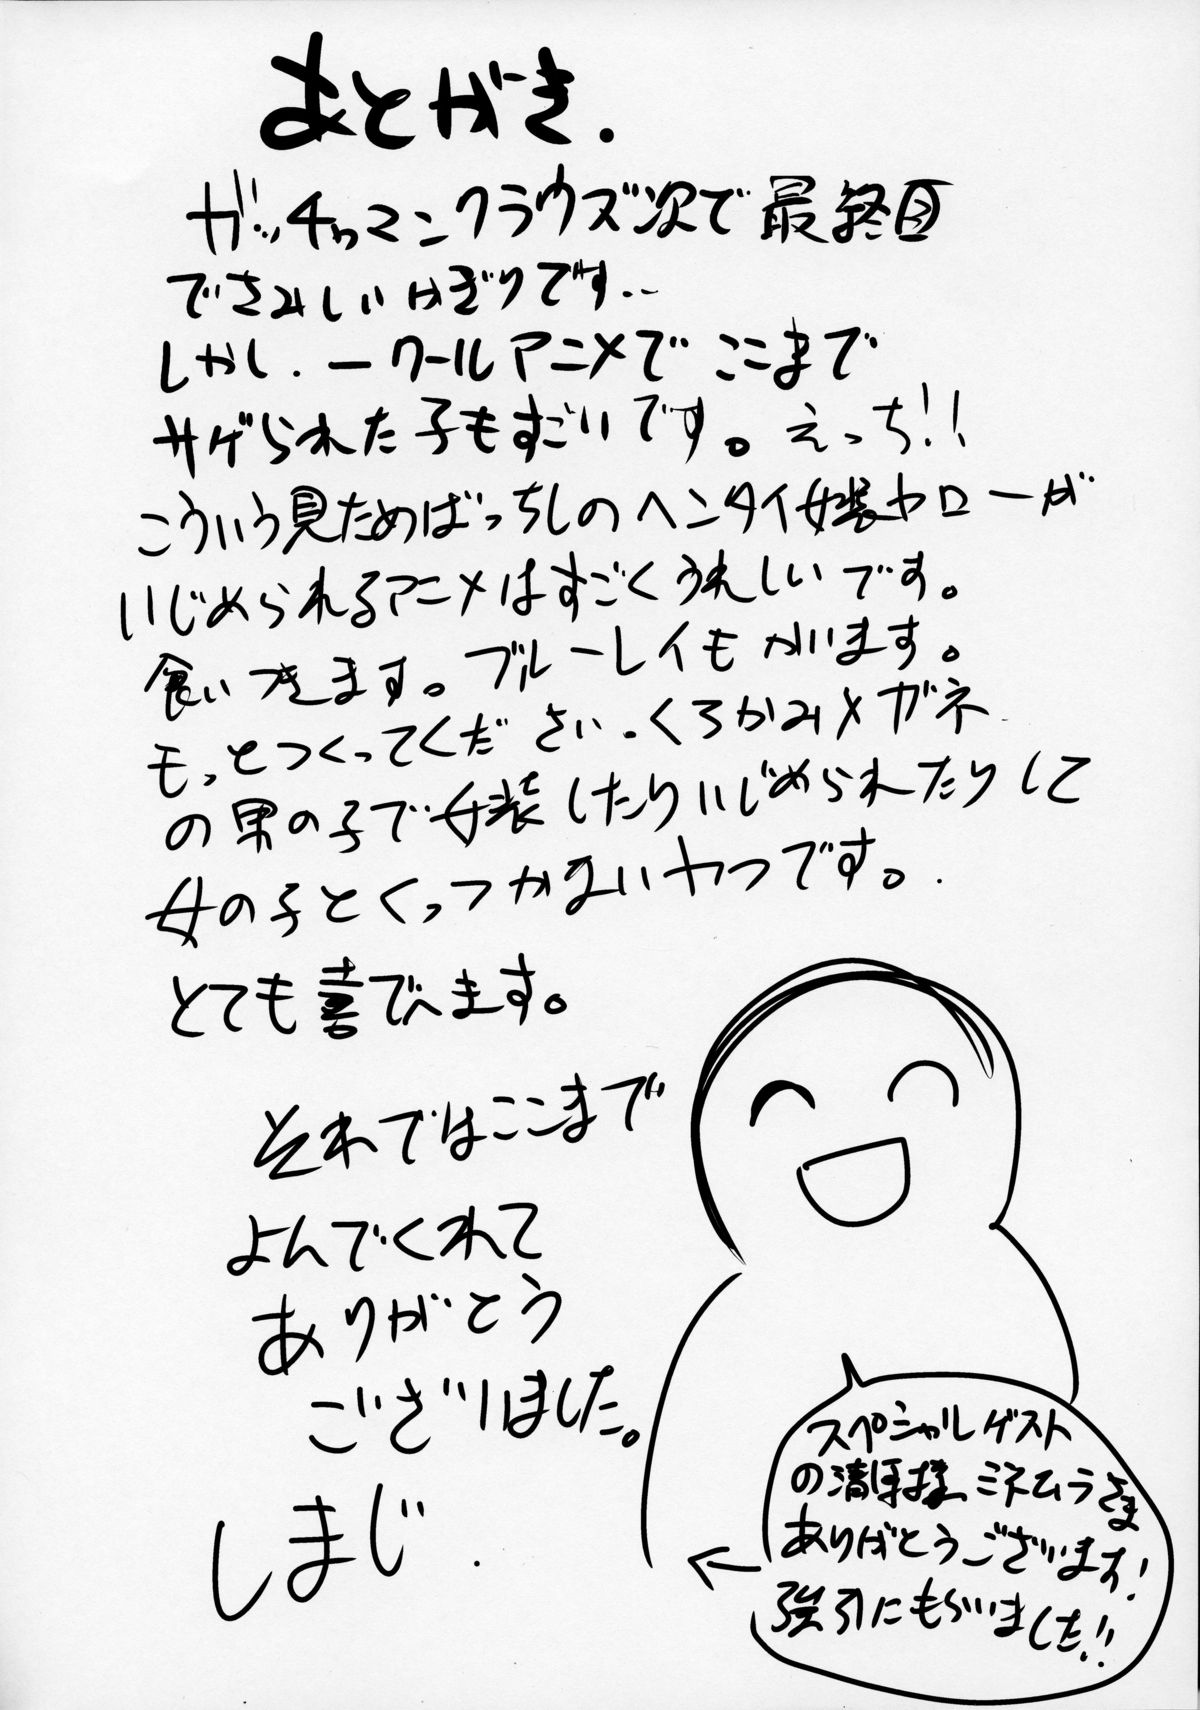 あとがき.
ガッチャマンクラウズ次で最終回
でさみしいかぎりです..
しかし.一クールアニメでここまで
サゲられた子もすごいです。えっち!!
こういう見ためばっちしのヘンタイ女装ヤローが
いじめられるアニメはすごくうれしいです。
食いつきます。ブルーレイもかいます。
もっとつくってください.くろかみメガネ
の男の子で女装したりいじめられたりして
女の子とくっつかないやつです。.
とても喜びます。
それではここまで
よんでくれて
ありがとう
ございました。
しまじ.
スペシャルゲスト
の清様 ミネムラさま
ありがとうございます!
強引にもらいました!!
←